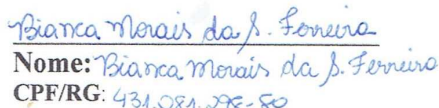 Bianca Morais da S. Ferreira
Nome: Bianca Morais da S. Ferreira
CPF/RG: 431.081.298-80